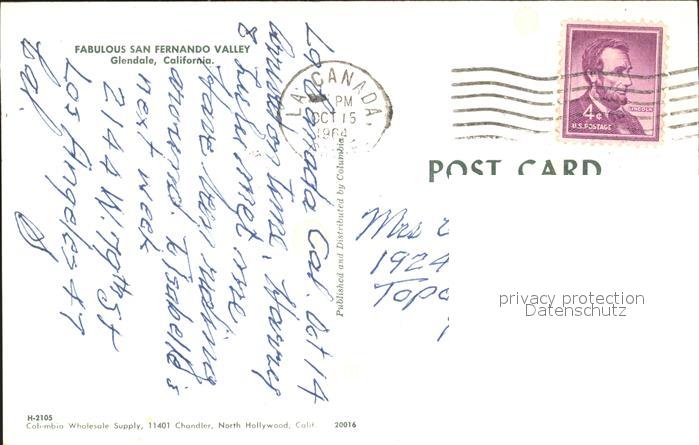 FABULOUS SAN FERNANDO VALLEY
Glendale, California.
La Canada Cal. Oct 14
Arrived on time. Harvey
& Hulu met me.
Have been rushing
around. Isabelle's
next week
2144 W. 79th St
Los Angeles 47
Cal.
Published and Distributed by Columbia
H-2105
Columbia Wholesale Supply, 11401 Chandler, North Hollywood, Calif. 20016
LA CANADA,
PM
OCT 15
1964
4¢
LINCOLN
U.S. POSTAGE
POST CARD
Mrs
1924
Topo
privacy protection
Datenschutz